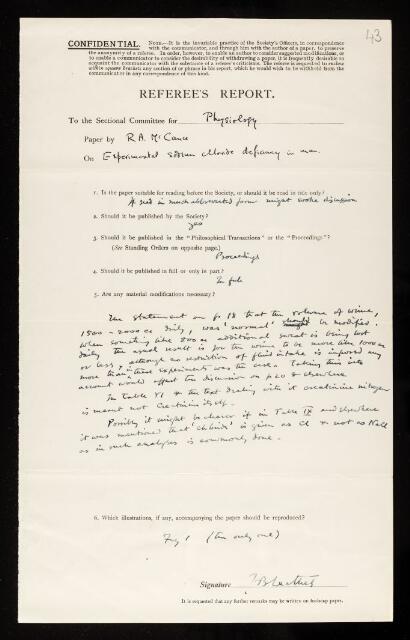 43
CONFIDENTIAL. NOTE.—It is the invariable practice of the Society's Officers, in correspondence
with the communicator, and through him with the author of a paper, to preserve
the anonymity of a referee. In order, however, to enable an author to consider suggested modifications, or
to enable a communicator to consider the desirability of withdrawing a paper, it is frequently desirable to
acquaint the communicator with the substance of a referee's criticisms. The referee is requested to
communicator in any correspondence of this kind.
REFEREE'S REPORT.
To the Sectional Committee for Physiology
Paper by R.A. McCance
On Experimental sodium chloride deficiency in man.
1. Is the paper suitable for reading before the Society, or should it be read in title only?
If read in much abbreviated form might evoke discussion
2. Should it be published by the Society?
yes
3. Should it be published in the "Philosophical Transactions" or the "Proceedings"?
(See Standing Orders on opposite page.)
Proceedings
4. Should it be published in full or only in part?
In full
5. Are any material modifications necessary?
The statement on p. 18 that the volume of urine,
1500-2000 cc daily, was 'normal' should be modified.
When something like 800 cc additional sweat is being lost
daily the usual result is for the urine to be more like 1000 cc
or less, although no restriction of fluid intake is imposed any
more than in these experiments was the case. Taking this into
account would affect the discussion on p 20 & elsewhere
In Table VI & the text dealing with it creatinine nitrogen
is meant not Creatinine itself.
Possibly it might be clearer if in Table IX and elsewhere
it was mentioned that 'chloride' is given as Cl & not as NaCl
as in such analyses is commonly done.
6. Which illustrations, if any, accompanying the paper should be reproduced?
Fig 1 (the only one)
Signature J B Leathes
It is requested that any further remarks may be written on foolscap paper.